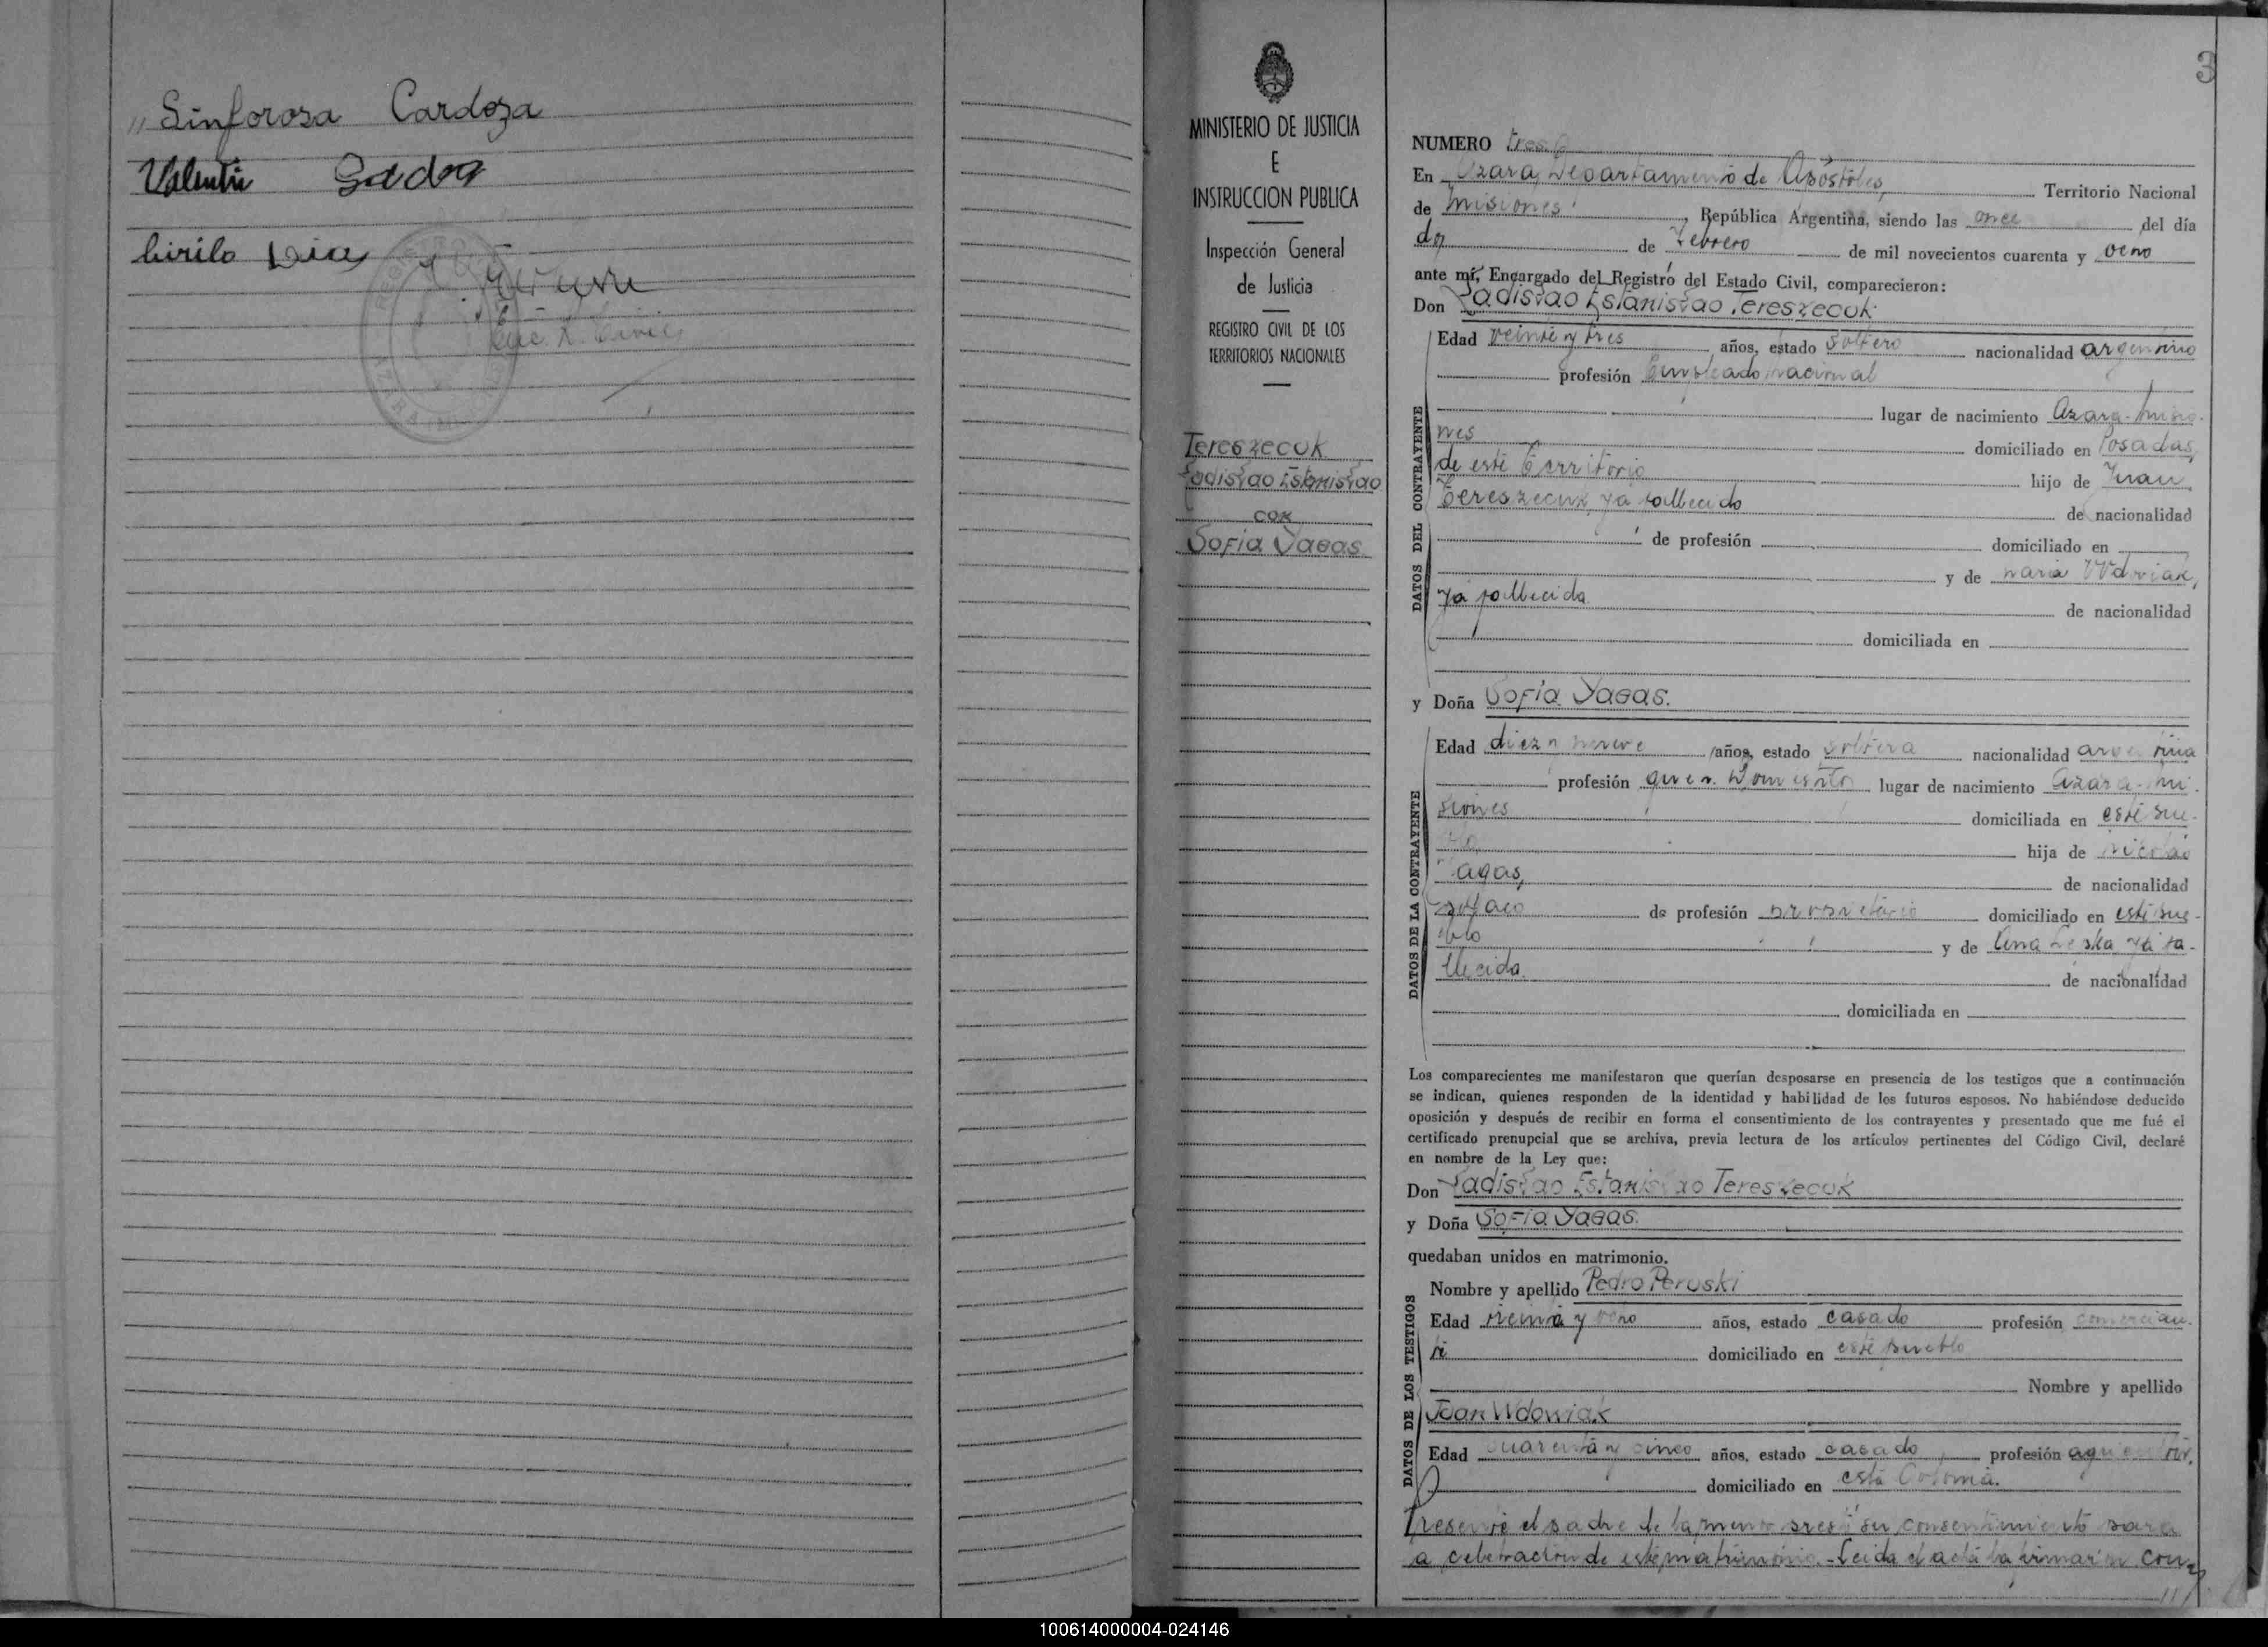 „ Sinforosa Cardoza
Valentin
Cirilo Diaz
MINISTERIO DE JUSTICIA
E
INSTRUCCION PUBLICA
Inspección General
de Justicia
REGISTRO CIVIL DE LOS
TERRITORIOS NACIONALES
Tereszecuk
Ladislao Estanislao
con
Sofia Yagas.
3
NUMERO tres
En Azara, Departamento de Apóstoles, Territorio Nacional
de Misiones, República Argentina, siendo las once del día
dos de Febrero de mil novecientos cuarenta y ocho
ante mí, Encargado del Registro del Estado Civil, comparecieron:
Don Ladislao Estanislao Tereszecuk.
DATOS DEL CONTRAYENTE
Edad veinte y tres años, estado soltero nacionalidad argentino
profesión Empleado nacional
lugar de nacimiento Azara-Misio-
nes domiciliado en Posadas,
de este Territorio hijo de Juan
Tereszecuk, ya fallecido de nacionalidad
de profesión domiciliado en
y de Maria Wdowiak,
ya fallecida. de nacionalidad
domiciliada en
y Doña Sofia Yagas.
DATOS DE LA CONTRAYENTE
Edad diez y nueve años, estado soltera nacionalidad argentina
profesión lugar de nacimiento Azara-Mi-
siones domiciliada en este pue-
blo, hija de Nicolás
Yagas, de nacionalidad
polaco de profesión propietario domiciliado en este pue-
blo y de Ana ya fa-
llecida. de nacionalidad
domiciliada en
Los comparecientes me manifestaron que querían desposarse en presencia de los testigos que a continuación
se indican, quienes responden de la identidad y habilidad de los futuros esposos. No habiéndose deducido
oposición y después de recibir en forma el consentimiento de los contrayentes y presentado que me fué el
certificado prenupcial que se archiva, previa lectura de los artículos pertinentes del Código Civil, declaré
en nombre de la Ley que:
Don Ladislao Estanislao Tereszecuk
y Doña Sofia Yagas.
quedaban unidos en matrimonio.
DATOS DE LOS TESTIGOS
Nombre y apellido Pedro Peruski
Edad treinta y ocho años, estado casado profesión comercian-
te domiciliado en este pueblo
Nombre y apellido
Juan Wdowiak
Edad cuarenta y cinco años, estado casado profesión agricultor,
domiciliado en esta Colonia.
Presente el padre de la menor prestó su consentimiento para
la celebración de este matrimonio.-Leída el acta la firmaron con-
100614000004-024146